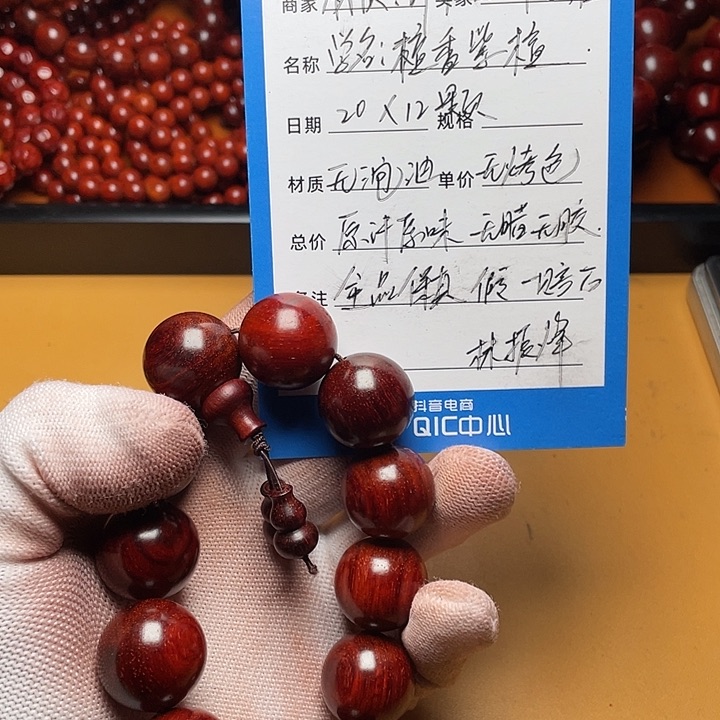 商家
名称 学名：檀香紫檀
日期 20×12颗 规格
材质 无润油 单价 无烤色
总价 原汁原味 无腊无胶
备注 全品保真 假一赔百
林振峰
抖音电商
QIC中心